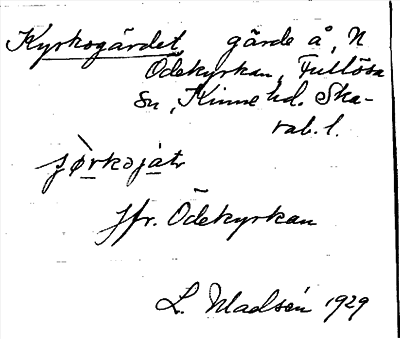 Kyrkogärdet, gärde å, N
Ödekyrkan, Fullösa
sn, Kinne hd. Ska-
rab. l.
jfr. Ödekyrkan
L. Madsén 1929